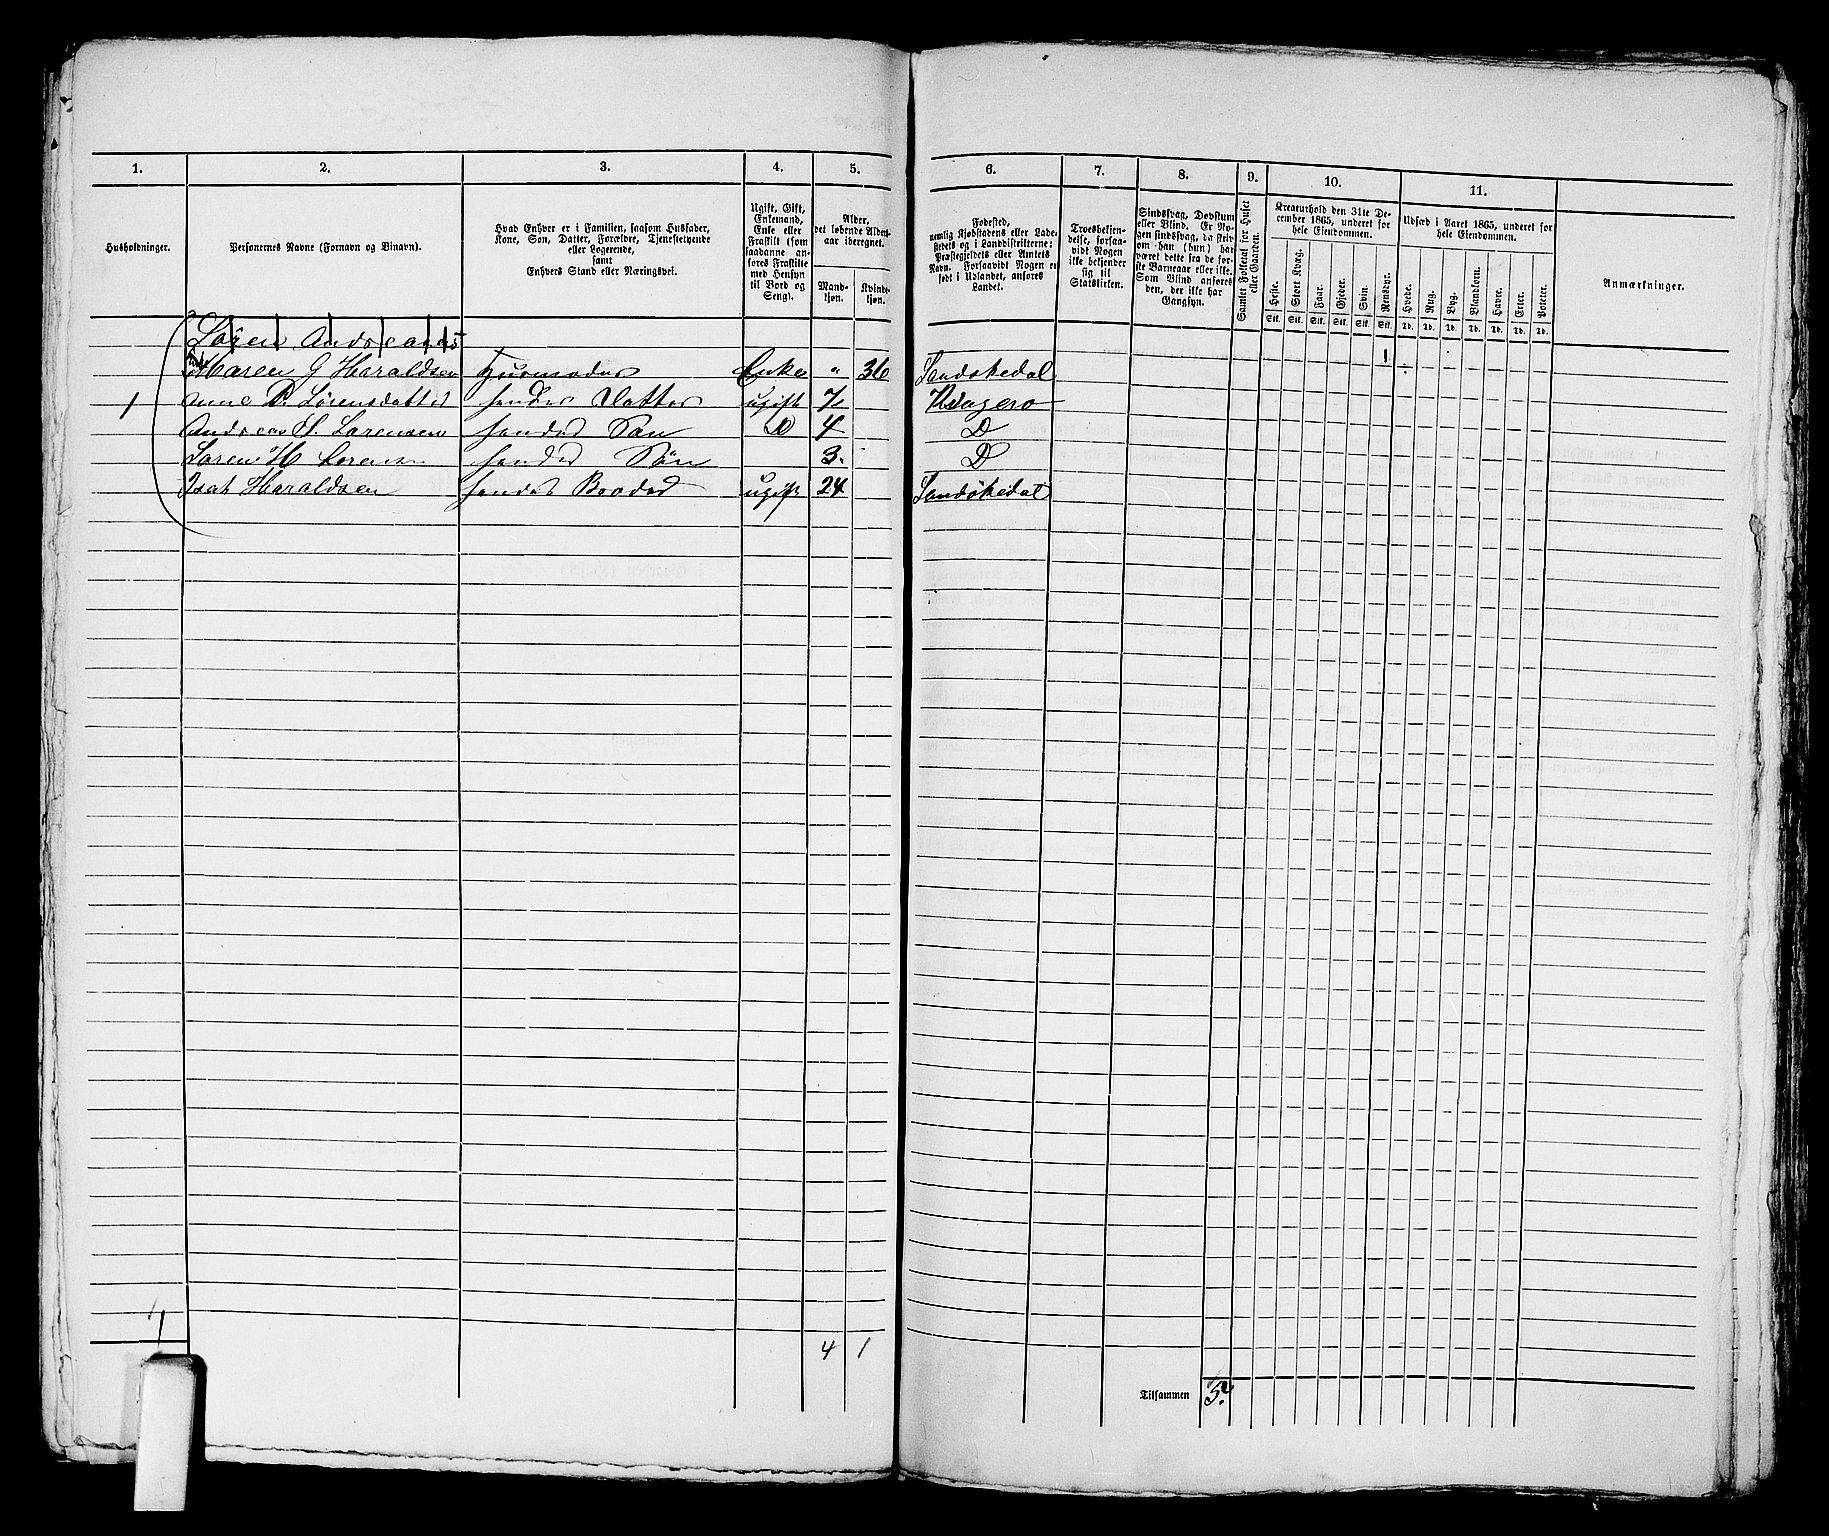 1. 2. 3. 4. 5. 6. 7. 8. 9. 10. 11.
Husholdninger.
Personernes Navne (Fornavn og Binavn).
Hvad Enhver er i Familien, saasom Husfader,
Kone, Søn, Datter, Forældre, Tjenestetyende
eller Logerende,
samt
Enhvers Stand eller Næringsvei.
Ugift, Gift,
Enkemand,
Enke eller
Fraskilt (som
saadanne an-
føres Fraskilte
med Hensyn
til Bord og
Seng).
Alder,
det løbende Alders-
aar iberegnet.
Mand-
kjøn.
Kvinde-
kjøn.
Fødested,
nemlig Kjøbstadens eller Lade-
stedets og i Landdistrikterne:
Præstegjeldets eller Amtets
Navn. Forsaavidt Nogen er
født i Udlandet, anføres
Landet.
Troesbekjen-
delse, forsaa-
vidt Nogen
ikke bekjender
sig til
Statskirken.
Sindssvag, Døvstum
eller Blind. Er No-
gen sindssvag, da skriv
om han (hun) har
været dette fra de før-
ste Barneaar eller ikke.
Som Blind anføres
den, der ikke har
Gangsyn.
Samlet Folketal for Huset
eller Gaarden.
Kreaturhold den 31te De-
cember 1865, underet for
hele Eiendommen.
Heste. Stort Kvæg. Faar. Gjeder. Svin. Rensdyr.
Stk. Stk. Stk. Stk. Stk. Stk.
Udsæd i Aaret 1865, underet for
hele Eiendommen.
Hvede. Rug. Byg. Blandkorn. Havre. Erter. Poteter.
Td. Td. Td. Td. Td. Td. Td.
Anmærkninger.
Søren Andreasens
Maren G Haraldsen Huusmoder Enke " 36 Sandøkedal
1 Anne D. Sørensdatter hendes Datter ugift 7 Kragerø
Andreas S. Sørensen hendes Søn D 4 D
Søren H Sørensen hendes Søn 3. D
Isak Haraldsen hendes Broder ugift 24 Sandøkedal
1
4 1
Tilsammen 5.